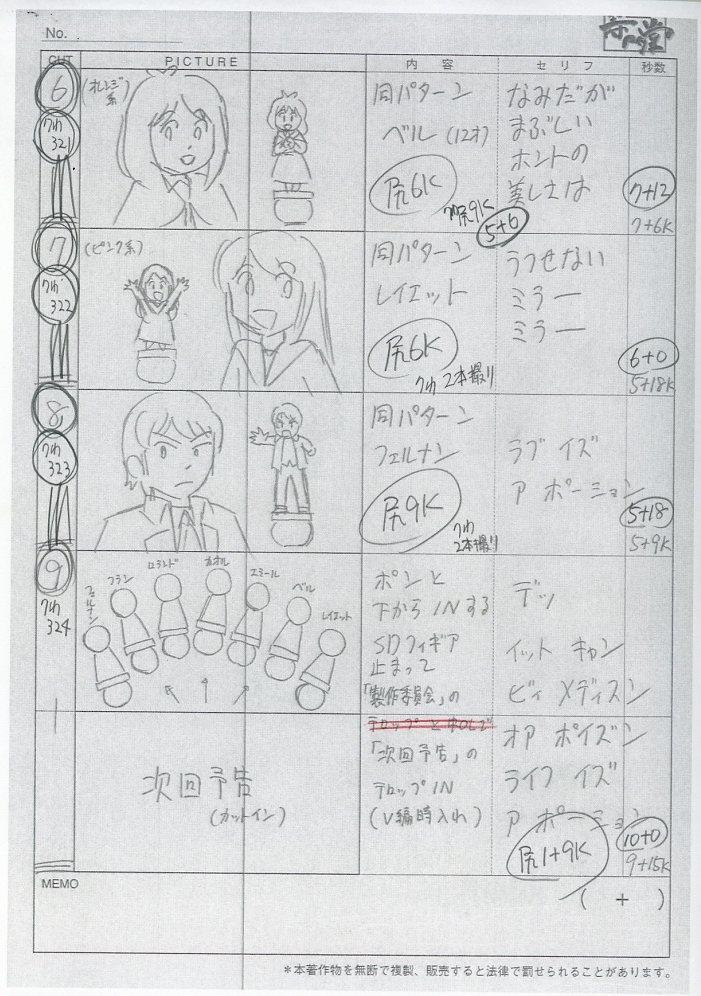 No.
CUT PICTURE 内容 セリフ 秒数
6
(オレンジ系)
321
同パターン
ベル (12才)
尻6K
尻9K
なみだが
まぶしい
ホントの
美しさは
7+12
5+6
7+6K
7
(ピンク系)
322
同パターン
レイエット
尻6K
2本撮り
うつせない
ミラー
ミラー
6+0
5+18K
8
323
同パターン
フェルナン
尻9K
2本撮り
ラブ イズ
ア ポーション
5+18
5+9K
9
324
フェルナン
フラン
ロランド
カオル
エミール
ベル
レイエット
ポンと
下から INする
SDフィギア
止まって
「製作委員会」の
テロップと
「次回予告」の
テロップIN
(V編時入れ)
デッ
イット キャン
ビィ メディスン
オア ポイズン
ライフ イズ
ア ポーション
尻1+9K
10+0
9+15K
次回予告
(カットイン)
MEMO
( + )
*本著作物を無断で複製、販売すると法律で罰せられることがあります。